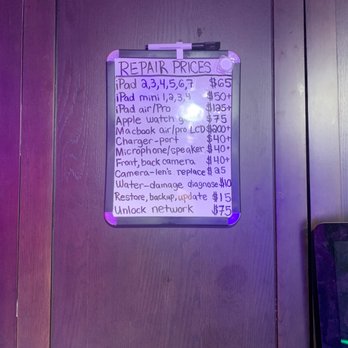 REPAIR PRICES
iPad 2,3,4,5,6,7 $65
iPad mini 1,2,3,4 $50+
iPad air/Pro $125+
Apple watch $75
Macbook air/pro LCD $200+
Charger-port $40+
Microphone/speaker $40+
Front, back camera $40+
Camera-len's replace $25
Water-damage, diagnose $10
Restore, backup, update $15
Unlock network $75